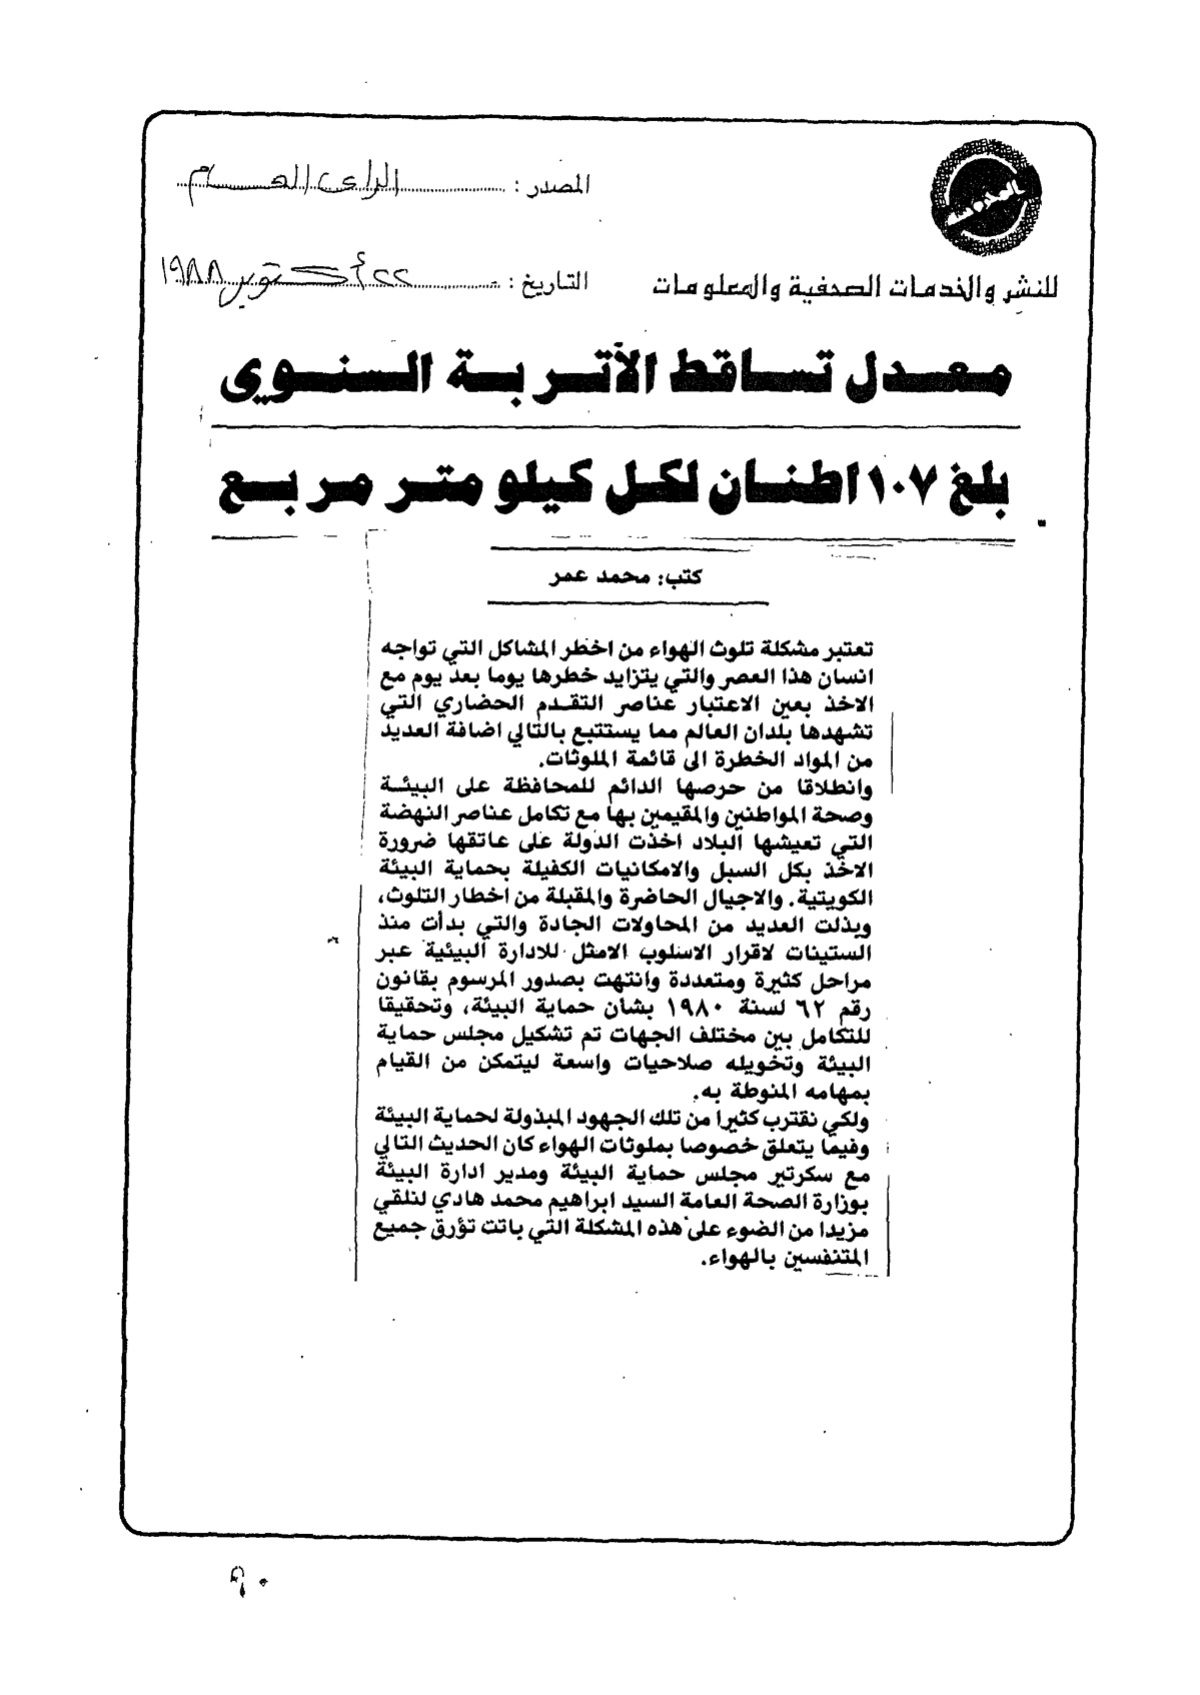 المصدر : الرأى العام
للنشر والخدمات الصحفية والمعلومات
التاريخ : ٢٢ أكتوبر ١٩٨٨
معدل تساقط الأتربة السنوى
بلغ ١٠٧ اطنان لكل كيلو متر مربع
كتب: محمد عمر
تعتبر مشكلة تلوث الهواء من اخطر المشاكل التي تواجه
انسان هذا العصر والتي يتزايد خطرها يوما بعد يوم مع
الاخذ بعين الاعتبار عناصر التقدم الحضاري التي
تشهدها بلدان العالم مما يستتبع بالتالي اضافة العديد
من المواد الخطرة الى قائمة الملوثات.
وانطلاقا من حرصها الدائم للمحافظة على البيئة
وصحة المواطنين والمقيمين بها مع تكامل عناصر النهضة
التي تعيشها البلاد اخذت الدولة على عاتقها ضرورة
الاخذ بكل السبل والامكانيات الكفيلة بحماية البيئة
الكويتية. والاجيال الحاضرة والمقبلة من اخطار التلوث،
وبذلت العديد من المحاولات الجادة والتي بدأت منذ
الستينات لاقرار الاسلوب الامثل للادارة البيئية عبر
مراحل كثيرة ومتعددة وانتهت بصدور المرسوم بقانون
رقم ٦٢ لسنة ١٩٨٠ بشأن حماية البيئة، وتحقيقا
للتكامل بين مختلف الجهات تم تشكيل مجلس حماية
البيئة وتخويله صلاحيات واسعة ليتمكن من القيام
بمهامه المنوطة به.
ولكي نقترب كثيرا من تلك الجهود المبذولة لحماية البيئة
وفيما يتعلق خصوصا بملوثات الهواء كان الحديث التالي
مع سكرتير مجلس حماية البيئة ومدير ادارة البيئة
بوزارة الصحة العامة السيد ابراهيم محمد هادي لنلقي
مزيدا من الضوء على هذه المشكلة التي باتت تؤرق جميع
المتنفسين بالهواء.
٩٠